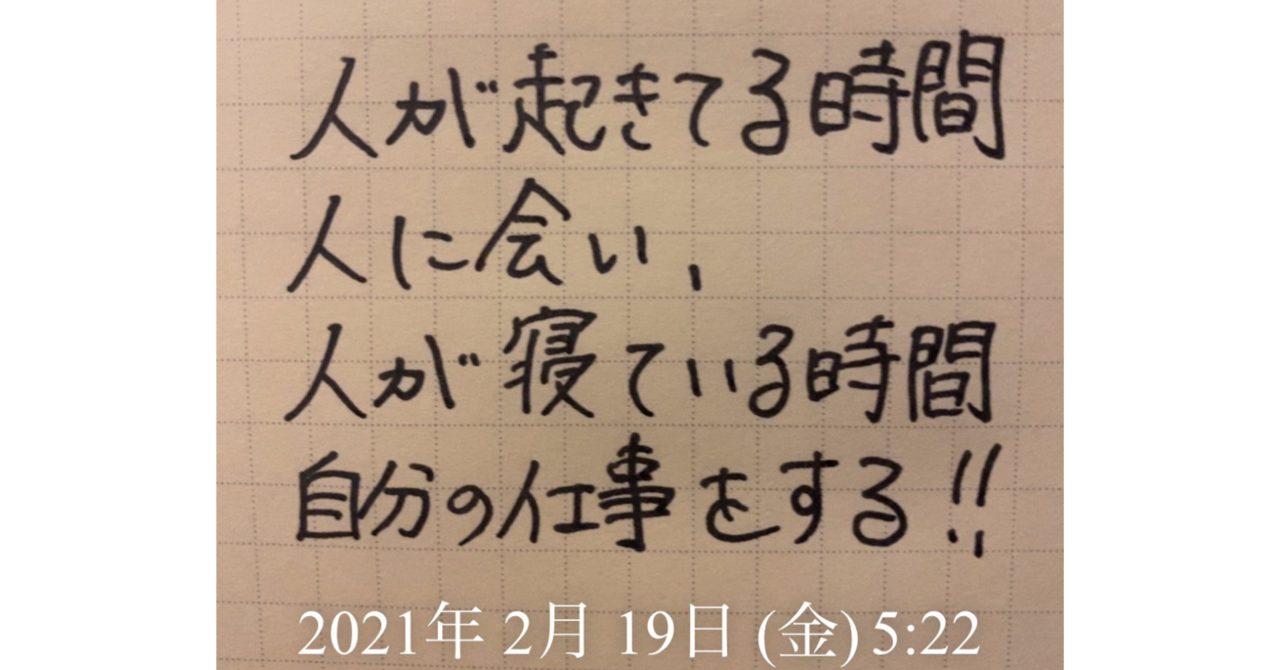 人が起きてる時間
人に会い、
人が寝ている時間
自分の仕事をする!!
2021年 2月 19日 (金) 5:22